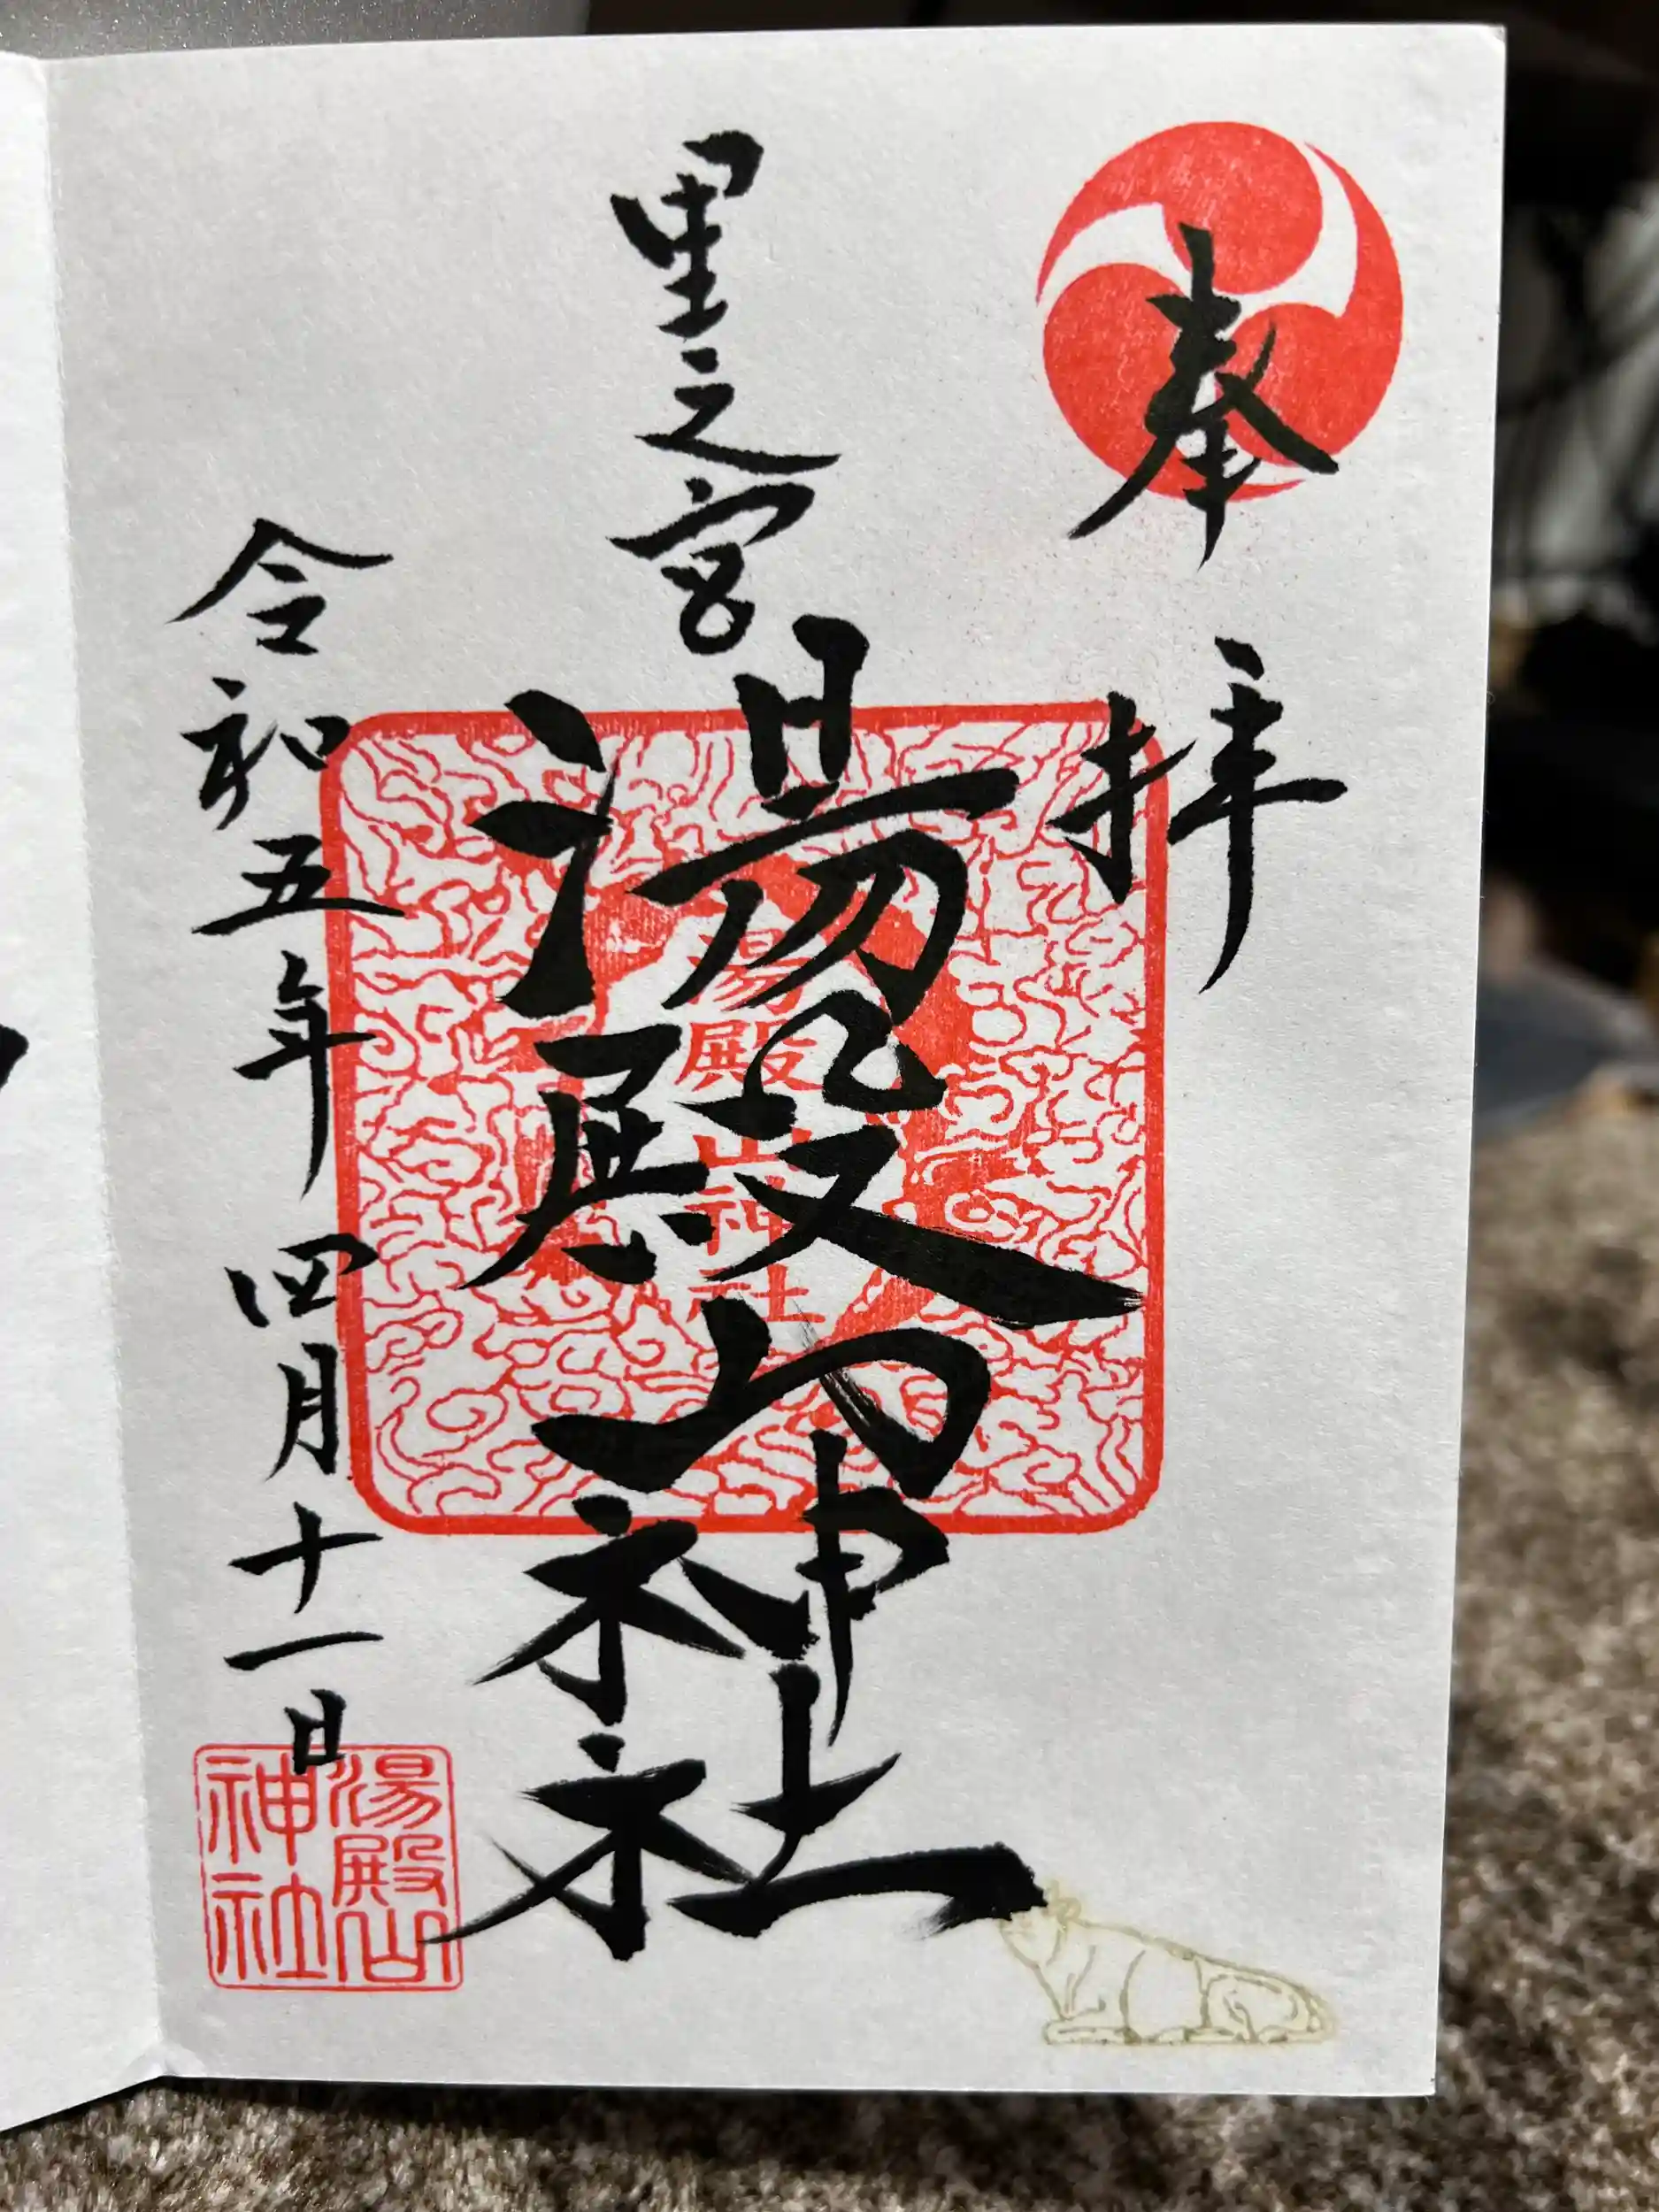 奉拝
里之宮
湯殿山神社
湯殿山神社
令和五年四月十一日
湯殿山
神社